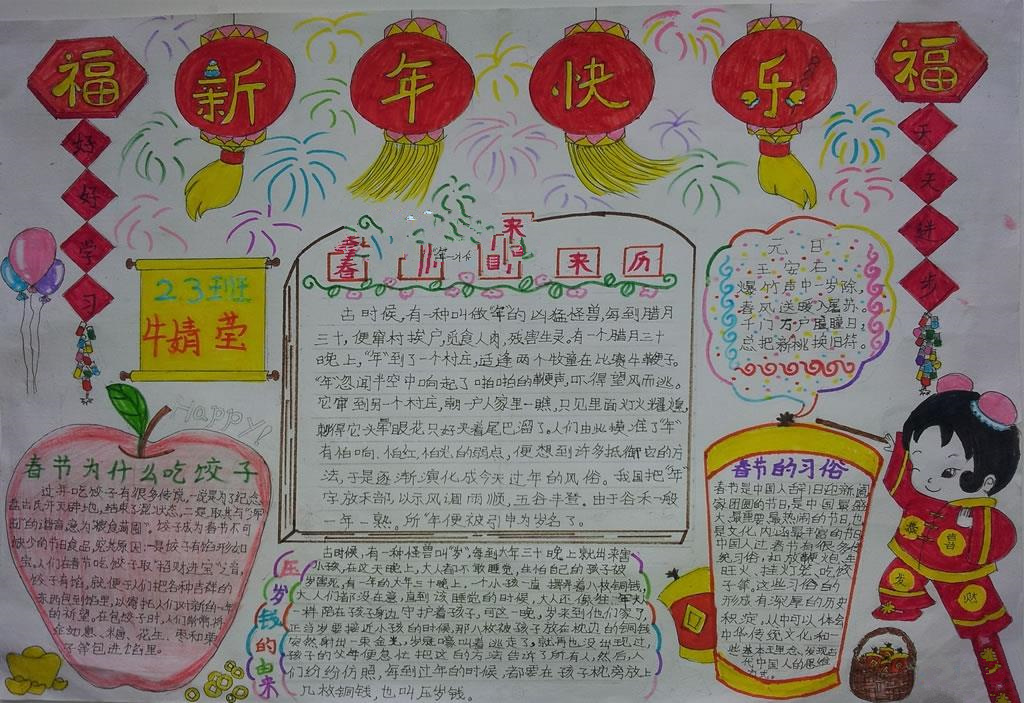 福
新年快乐
福
好好学习
天天进步
2.3班
牛婧莹
来历
古时候,有一种叫做"年"的凶猛怪兽,每到腊月
三十,便窜村挨户,觅食人肉,残害生灵。有一个腊月三十
晚上,"年"到了一个村庄,适逢两个牧童在比赛牛鞭子。
"年"忽闻半空中响起了啪啪的鞭声,吓得望风而逃。
它窜到另一个村庄,朝一户人家里一瞧,只见里面灯火
只好夹着尾巴溜了。人们由此摸准了"年"
有怕响、怕红、怕光的弱点,便想到许多抵御它的方
法,于是逐渐演化成今天过年的风俗。我国把"年"
字放禾部,以示风调雨顺,五谷丰登。由于谷禾一般
一年一熟。所"年"便被引申为岁名了。
元日
王安石
爆竹声中一岁除,
春风送暖入屠苏。
千门万户曈曈日,
总把新桃换旧符。
Happy!
春节为什么吃饺子
过年吃饺子有很多传说,一说是为了纪念
盘古氏开天辟地,结束了混状态,二是取其与"
"的谐音,意为"粮食满囤"。饺子成为春节不可
缺少的节日食品,究其原因:一是饺子有馅形如
宝,人们在春节吃饺子取"招财进宝"之音,
饺子有馅,就便于人们把各种吉祥的
东西包到馅里,以寄托人们对新的一年
的祈望。在包饺子时,人们常常将
金如意、糖、花生、枣和栗
子等包进馅里。
压岁钱的由来
古时候,有一种怪兽叫"岁",每到大年三十晚上就出来害
小孩,在这天晚上,大人都不敢睡觉,在怕自己的孩子被
岁害死,有一年的大年三十晚上,一个小孩一直摆弄着八枚铜钱,
大人们都没在意,直到该睡觉的时候,大人还像往年
一样陪在孩子身边守护着孩子,可这一晚,岁来到他们家了,
正当岁要接近小孩的时候,那八枚被孩子放在枕边的铜钱
突然射出一束金光,岁嚎叫着逃走了,就再也没出现过,
孩子的父母便急忙把这个方法告诉了所有人,然后人
们纷纷仿照,每到过年的时候,都要在孩子枕旁放上
几枚铜钱,也叫压岁钱。
春节的习俗
春节是中国人辞旧迎新阖
家团圆的节日,是中国最盛
大、最重要、最热闹的节日,也
是文化内涵最丰富的节日
中国人过春节有很多传
统习俗,如放鞭炮、点
旺火、挂灯笼、吃饺
子等。这些习俗各自的
形成有深厚的历史
积淀,从中可以体会
中华传统文化和一
些基本理念,发现古
代中国人的思维
方式。
恭喜
发财